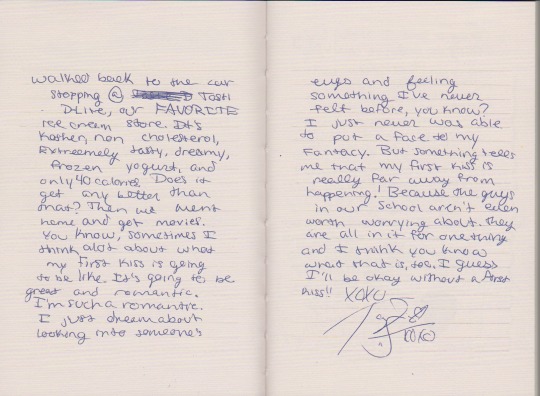 walked back to the car
stopping @ Tasti
D-Lite, our FAVORITE
ice cream store. It's
Kosher, non cholesterol,
Extreemely tasty, dreamy,
frozen yogurt, and
only 40 calories. Does it
get any better than
that? Then we went
home and get movies.
You know, sometimes I
think alot about what
my first kiss is going
to be like. It's going to be
great and romantic.
I'm such a romantic.
I just dream about
looking into someone's
eyes and feeling
something I've never
felt before, you know?
I just never was able
to put a face to my
Fantacy. But something tells
me that my first kiss is
really far away from
happening! Because the guys
in our school aren't even
worth worrying about. they
are all in it for one thing
and I think you know
what that is, too. I guess
I'll be okay without a first
kiss!! XOXO
XOXO